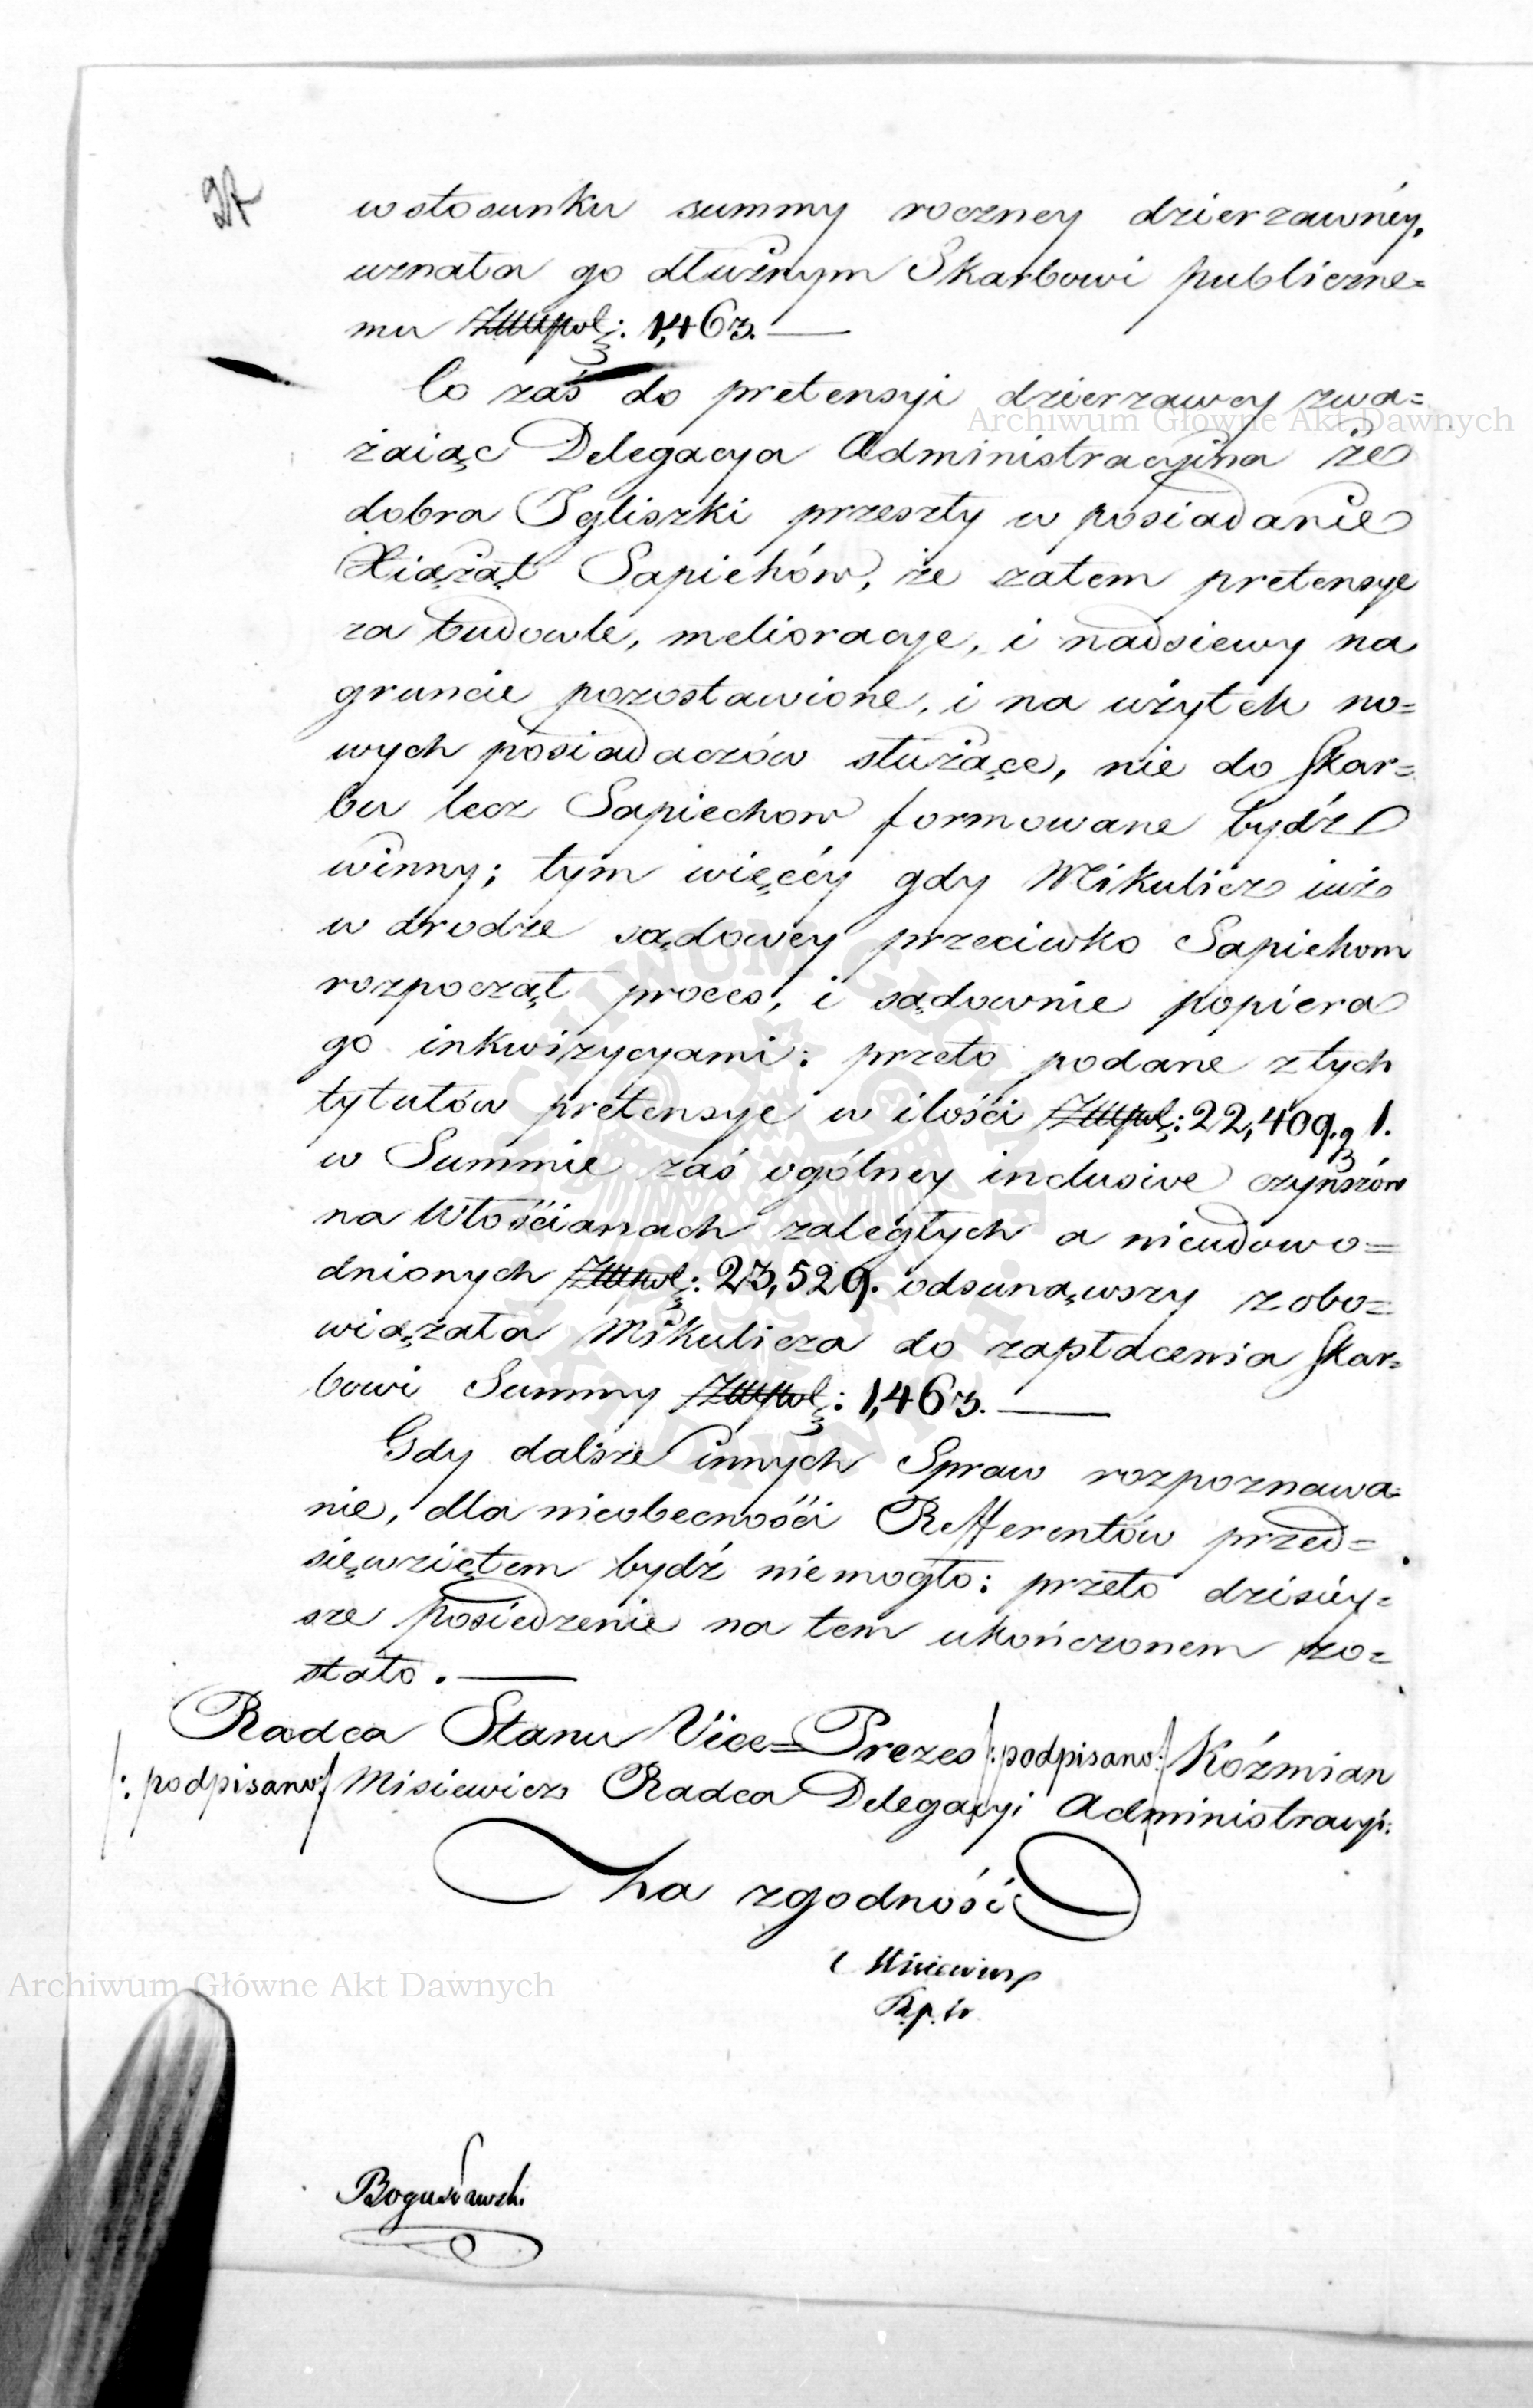 w stosunku summy roczney dzierzawnéy,
uznała go dłużnym Skarbowi publiczne=
mu Złłłpol: 1,463. —
Co zaś do pretensyi dzierzawcy zwa=
żaiąc Delegacya Administracyina że
dobra Igliszki przeszły w posiadanie
Xiążąt Sapiehów, że zatem pretensye
za budowle, melioracye, i nadsiewy na
gruncie pozostawione, i na użytek no=
wych posiadaczów służące, nie do Skar=
bu lecz Sapiechow formowane bydź
winny; tym więcéy gdy Mikulicz iuż
w drodze sądowey przeciwko Sapiehom
rozpoczął proces, i sądownie popiera
go inkwizycyami: przeto podane z tych
tytułów pretensye w ilości Złłpol: 22,409. g 1.
w Summie zaś ogólney inclusive czynszów
na Włościanach zaległych a nieudowo=
dnionych Złłpol: 23,529. odsunąwszy zobo=
wiązała Mikulicza do zapłacenia Skar=
bowi Summy Złłłpol: 1,463. —
Gdy dalsze innych Spraw rozpoznawa=
nie, dla nieobecności Refferentów przed=
sięwziętem bydź niemogło: przeto dzisiéy=
sze posiedzenie na tem ukończonem zo=
stało. —
Radca Stanu Vice=Prezes /:podpisano:/ Koźmian
/:podpisano:/ Misiewicz Radca Delegacyi Administracyi:
Za zgodność
Misiewicz
Boguslawski
Archiwum Główne Akt Dawnych
Archiwum Główne Akt Dawnych
ARCHIWUM GŁÓWNE AKT DAWNYCH